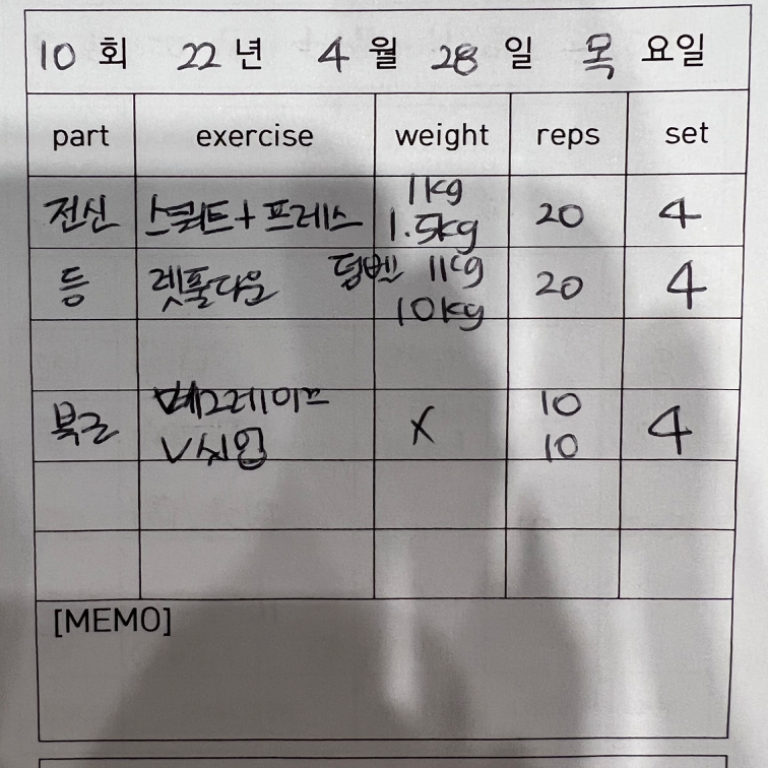 10 회 22 년 4 월 28 일 목 요일
part exercise weight reps set
전신 스쿼트+프레스 1kg 1.5kg 20 4
등 렛풀다운 텀벤 11kg 10kg 20 4
복근 레그레이즈 V싯업 X 10 10 4
[MEMO]